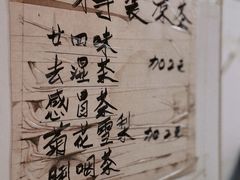 特裝涼茶
廿四味
去濕茶 加2元
感冒茶
菊花雪梨 加2元
茶